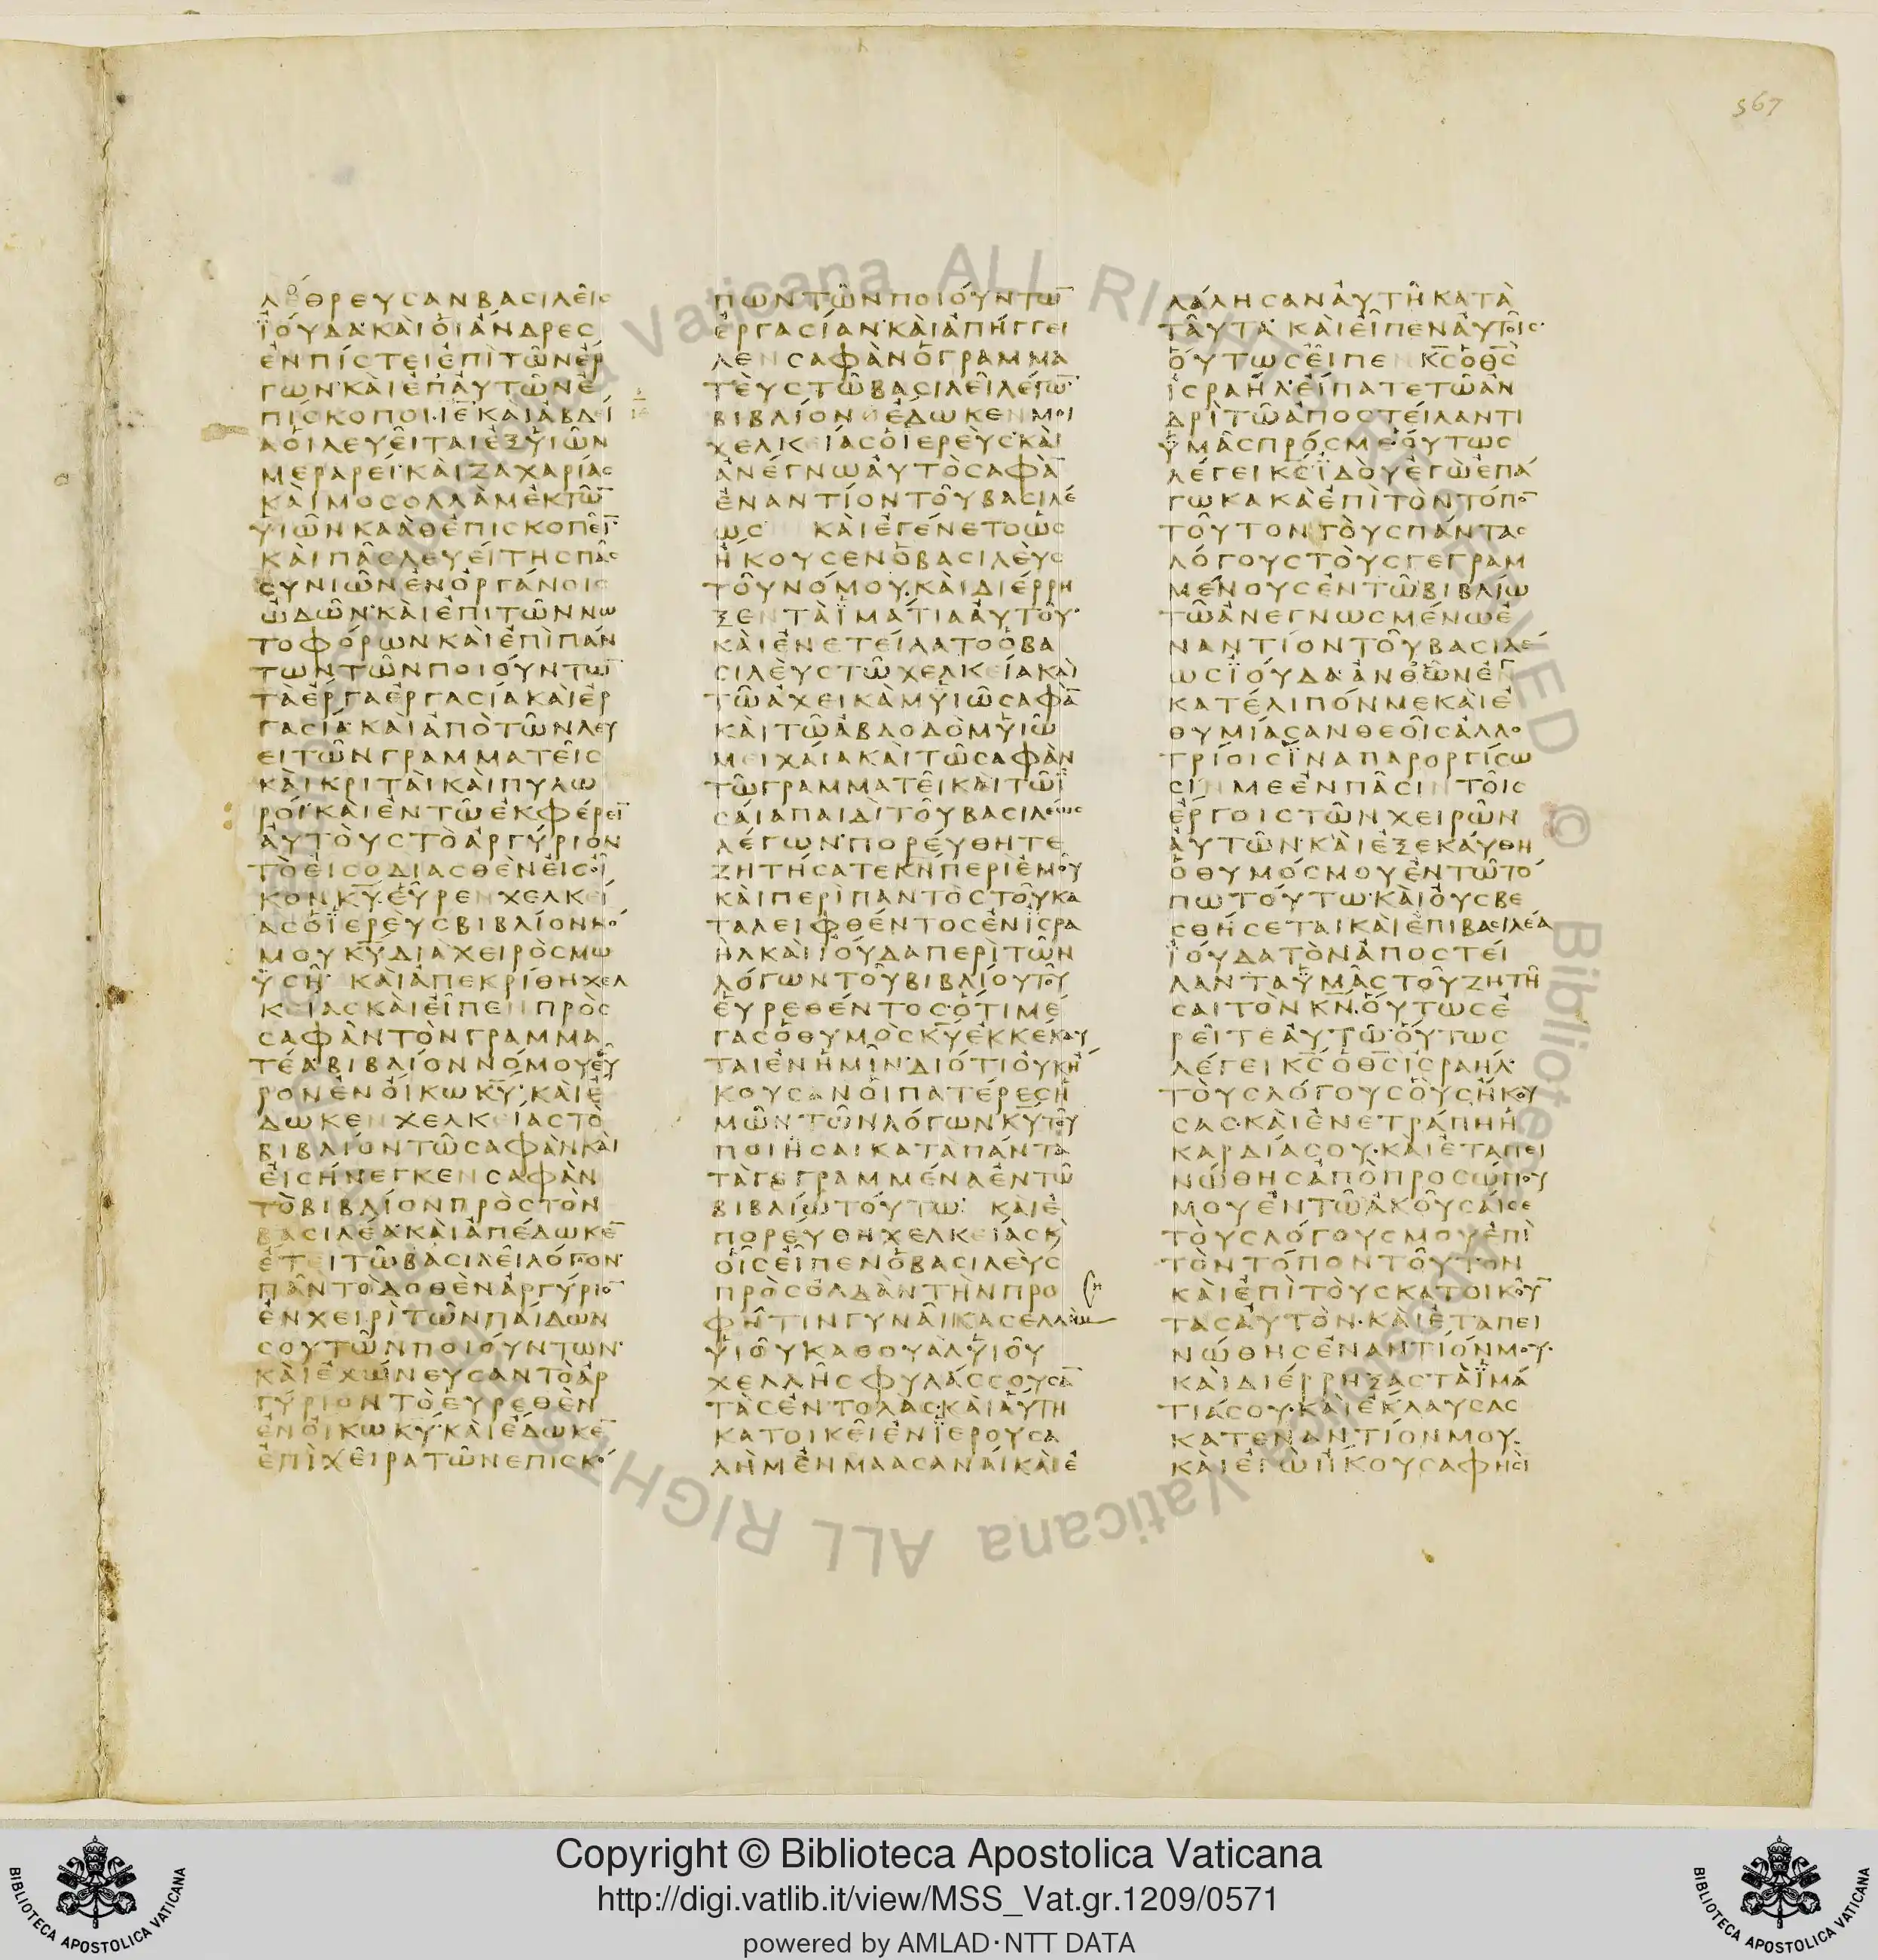 567
λεθρευσαν βασιλεῖς
ϊούδα· καὶ οἱ ἄνδρες
ἐν πίστει ἐπὶ τῶν ἔρ
γων· καὶ ἐπ αὐτῶν ἐ
πίσκοποι· ιε καὶ αβδεί
α οἱ λευεῖται ἐξ υἱῶν
μεραρεί· καὶ ζαχαρίας
καὶ μοσολλὰμ ἐκ τῶ̅
υἱῶν καὰθ ἐπισκοπεῖ̅·
καὶ πᾶς λευείτης πᾶς
συνιῶν ἐν ὀργάνοις
ὠδῶν· καὶ ἐπὶ τῶν νω
τοφόρων καὶ ἐπὶ πάν
των τῶν ποιούντω̅
τὰ ἔργα ἐργασία καὶ ἐρ
γασία· καὶ ἀπὸ τῶν λευ
ειτῶν γραμματεῖς
καὶ κριταὶ καὶ πυλω
ροί· καὶ ἐν τῶ ἐκφέρει̅
αὐτοὺς τὸ ἀργύριον
τὸ εἰσοδιασθὲν εἰς οἶ
κον κ̅υ̅· εὗρεν χελκεί
ας ὁ ϊερεὺς βιβλίον νό
μου κ̅υ̅ διὰ χειρὸς μω
ϋσῆ· καὶ ἀπεκρίθη χελ
κείας καὶ εἶπεν πρὸς
σαφὰν τὸν γραμμα
τέα· βιβλίον νόμου εὗ
ρον ἐν οἴκω κ̅υ̅· καὶ ἔ
δωκεν χελκείας τὸ
βιβλίον τῶ σαφὰν καὶ
εἰσήνεγκεν σαφὰν
τὸ βιβλίον πρὸς τὸν
βασιλέα· καὶ ἀπέδωκε̅
ἔτει τῶ βασιλεῖ λόγον·
πᾶν τὸ δοθὲν ἀργύριο̅
ἐν χειρὶ τῶν παίδων
σου τῶν ποιούντων·
καὶ ἐχώνευσαν τὸ ἀρ
γύριον τὸ εὑρεθὲν
ἐν οἴκω κ̅υ̅· καὶ ἔδωκε̅
ἐπὶ χεῖρα τῶν ἐπισκό
πων τῶν ποιούντω̅
ἐργασίαν· καὶ ἀπήγγει
λεν σαφὰν ὁ γραμμα
τεὺς τῶ βασιλεῖ λέγω̅·
βιβλίον ἔδωκεν μοι
χελκείας ὁ ϊερεὺς· καὶ
ἀνέγνω αὐτὸ σαφὰ̅
ἐναντίον τοῦ βασιλέ
ως καὶ ἐγένετο ὡς
ἤκουσεν ὁ βασιλεὺς
τοῦ νόμου· καὶ διέρρη
ξεν τὰ ϊμάτια αὐτοῦ·
καὶ ἐνετείλατο ὁ βα
σιλεὺς τῶ χελκεία καὶ
τῶ ἀχεικὰμ υἱῶ σαφὰ̅
καὶ τῶ ἀβδοδὸμ υἱῶ
μειχαία καὶ τῶ σαφὰν
τῶ γραμματεῖ καὶ τῶ ϊ
σαία παιδὶ τοῦ βασιλέως
λέγων· πορεύθητε
ζητήσατε κ̅ν̅ περὶ ἐμοῦ
καὶ περὶ παντὸς τοῦ κα
ταλειφθέντος ἐν ϊσρα
ὴλ καὶ ϊούδα περὶ τῶν
λόγων τοῦ βιβλίου τοῦ
εὑρεθέντος· ὅτι μέ
γας ὁ θυμὸς κ̅υ̅ ἐκκέκαυ
ται ἐν ἡμῖν· διότι οὐκ ἤ
κουσαν οἱ πατέρες ἡ
μῶν τῶν λόγων κ̅υ̅ τοῦ
ποιῆσαι κατὰ πάντα
τὰ γεγραμμένα ἐν τῶ
βιβλίω τούτω· καὶ ἐ
πορεύθη χελκείας κ̀
οἷς εἶπεν ὁ βασιλεὺς
πρὸς ὅλδαν τὴν προ
φῆτιν γυναῖκα σελλὴμ
υἱοῦ καθουὰλ υἱοῦ
χελλῆς φυλάσσουσα̅
τὰς ἐντολάς· καὶ αὕτη
κατοικεῖ ἐν ϊερουσα
λὴμ ἐν μαασαναί· καὶ ἐ
λάλησαν αὐτῆ κατὰ
ταῦτα· καὶ εἶπεν αὐτοῖς·
οὕτως εἶπεν κ̅ς̅ ὁ θ̅ς̅
ἰσραήλ· εἴπατε τῶ ἀν
δρὶ τῶ ἀποστείλαντι
ὑμᾶς πρός με· οὕτως
λέγει κ̅ς̅· ϊδοὺ ἐγὼ ἐπά
γω κακὰ ἐπὶ τὸν τόπο̅
τοῦτον τοὺς πάντας
λόγους τοὺς γεγραμ
μένους ἐν τῶ βιβλίω
τῶ ἀνεγνωσμένω ἐ
ναντίον τοῦ βασιλέ
ως ϊούδα· ἀνθ ὧν ἐγ
κατέλιπόν με καὶ ἐ
θυμίασαν θεοῖς ἀλλο
τρίοις ϊνα παροργίσω
σίν με ἐν πᾶσιν τοῖς
ἔργοις τῶν χειρῶν
αὐτῶν· καὶ ἐξεκαύθη
ὁ θυμός μου ἐν τῶ τό
πω τούτω· καὶ οὐ σβε
σθήσεται καὶ ἐπὶ βασιλέα
ϊούδα τὸν ἀποστεί
λαντα ὑμᾶς τοῦ ζητῆ
σαι τὸν κ̅ν̅· οὕτως ἐ
ρεῖτε αὐτῶ· οὕτως
λέγει κ̅ς̅ ὁ θ̅ς̅ ἰσραήλ·
τοὺς λόγους οὓς ἤκου
σας· καὶ ἐνετράπη ἡ
καρδία σου· καὶ ἐταπει
νώθης ἀπὸ προσώπου
μου ἐν τῶ ἀκοῦσαί σε
τοὺς λόγους μου ἐπὶ
τὸν τόπον τοῦτον
καὶ ἐπὶ τοὺς κατοικοῦ̅
τας αὐτὸν· καὶ ἐταπει
νώθης ἐναντίον μου·
καὶ διέρρηξας τὰ ϊμά
τιά σου· καὶ ἔκλαυσας
κατεναντίον μου·
καὶ ἐγὼ ἤκουσα φησὶ
Copyright © Biblioteca Apostolica Vaticana
http://digi.vatlib.it/view/MSS_Vat.gr.1209/0571
powered by AMLAD·NTT DATA
BIBLIOTECA APOSTOLICA VATICANA
BIBLIOTECA APOSTOLICA VATICANA